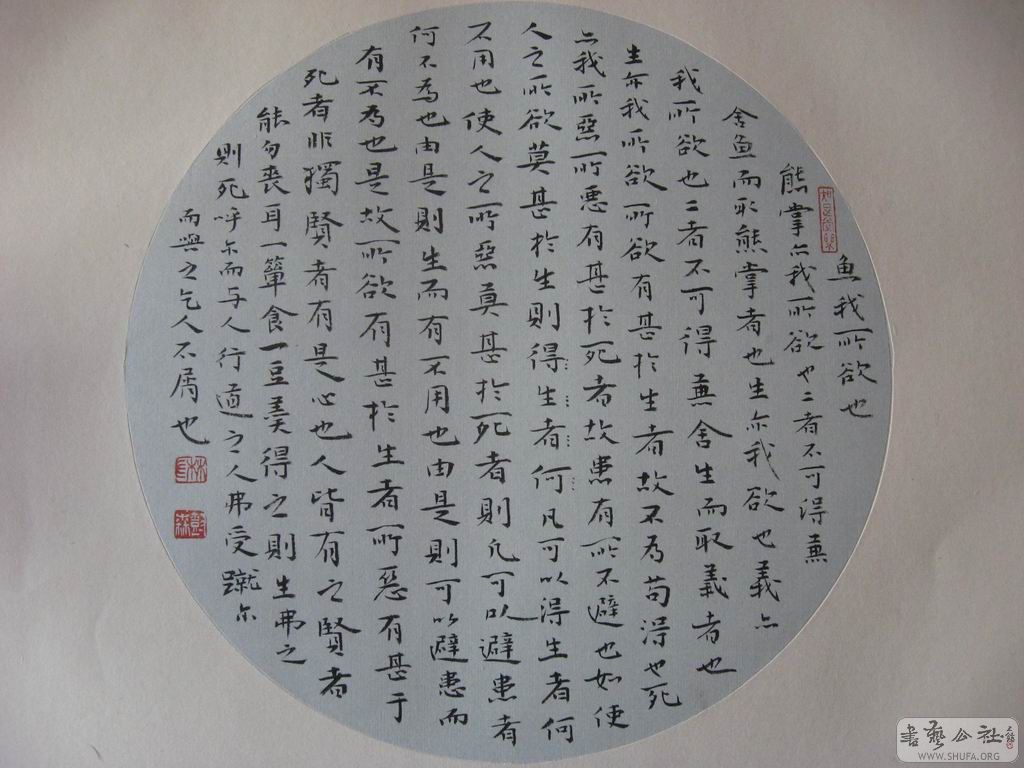 魚我所欲也
熊掌亦我所欲也二者不可得兼
舍魚而取熊掌者也生亦我欲也義亦
我所欲也二者不可得兼舍生而取義者也
生亦我所欲所欲有甚於生者故不為苟得也死
亦我所惡所惡有甚於死者故患有所不避也如使
人之所欲莫甚於生則得生者何凡可以得生者何
不用也使人之所惡莫甚於死者則凡可以避患者
何不為也由是則生而有不用也由是則可以避患而
有不為也是故所欲有甚於生者所惡有甚于
死者非獨賢者有是心也人皆有之賢者
能勿喪耳一簞食一豆羹得之則生弗之
則死呼尔而与人行道之人弗受蹴尔
而與之乞人不屑也
書藝公社
WWW.SHUFA.ORG